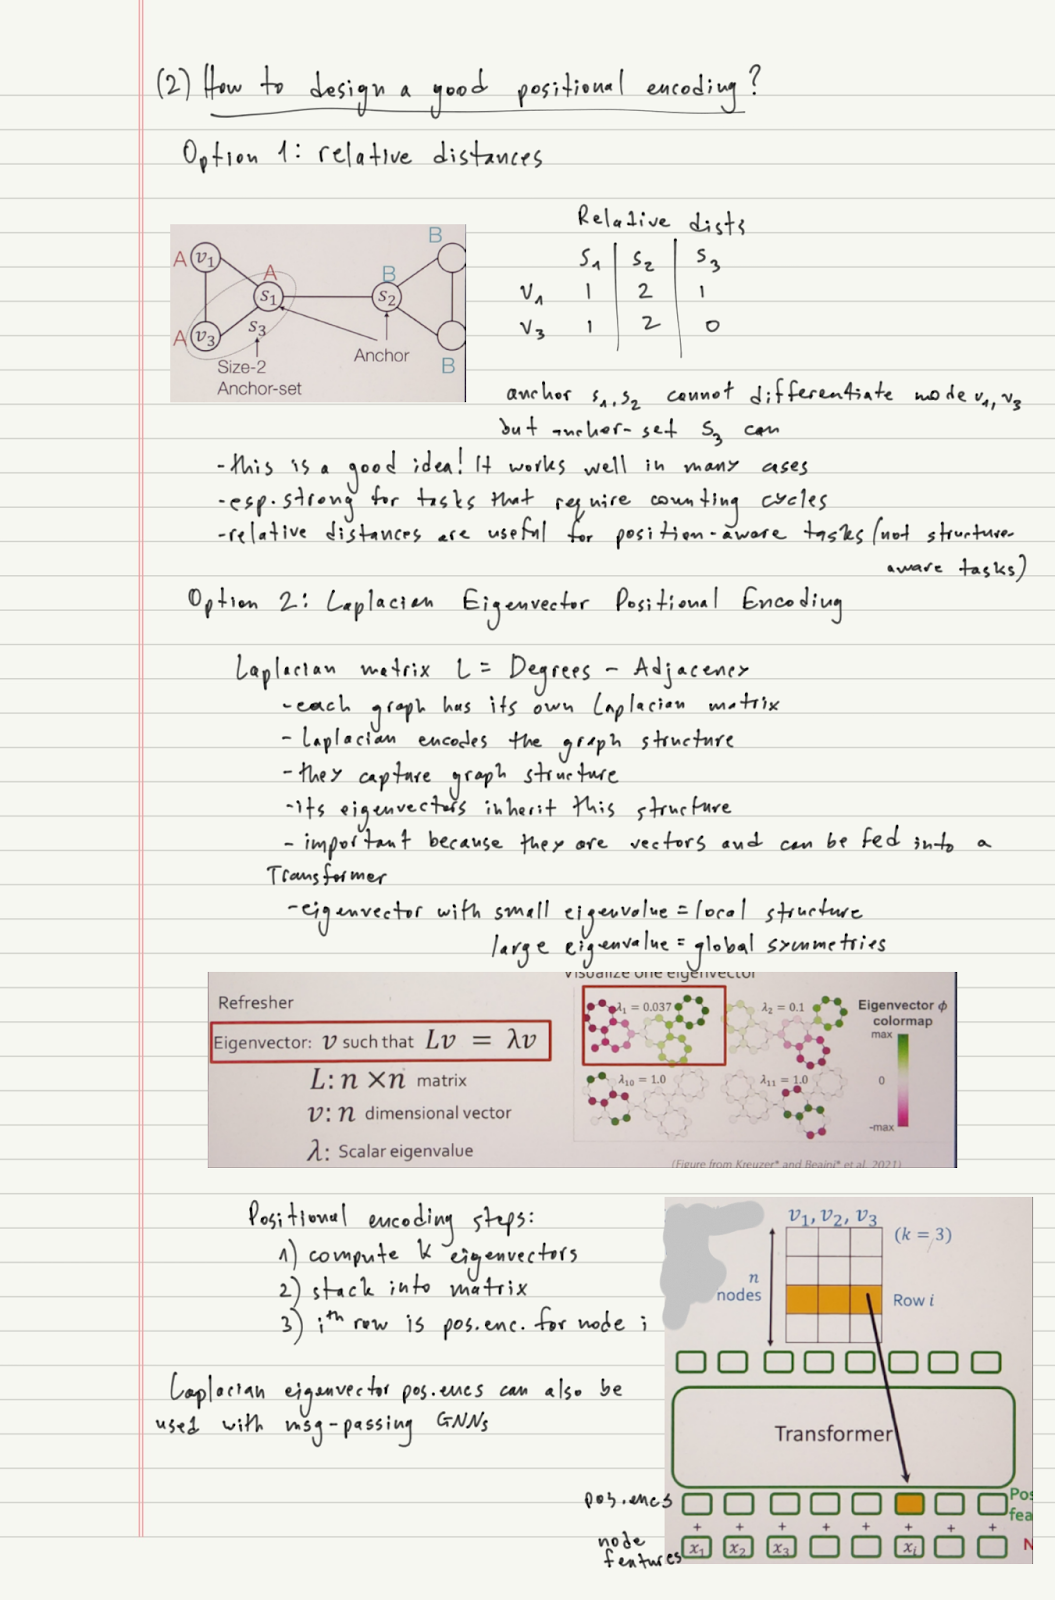 (2) How to design a good positional encoding?
Option 1: relative distances
Relative dists
S1 S2 S3
V1 1 2 1
V3 1 2 0
A v1
A
s1
A v3
s3
B
B
s2
B
Anchor
Size-2
Anchor-set
anchor s1, s2 cannot differentiate node v1, v3
but anchor-set S3 can
- this is a good idea! It works well in many cases
- esp. strong for tasks that require counting cycles
- relative distances are useful for position-aware tasks (not structure-
aware tasks)
Option 2: Laplacian Eigenvector Positional Encoding
Laplacian matrix L = Degrees - Adjacency
- each graph has its own Laplacian matrix
- Laplacian encodes the graph structure
- they capture graph structure
- its eigenvectors inherit this structure
- important because they are vectors and can be fed into a
Transformer
- eigenvector with small eigenvalue = local structure
large eigenvalue = global symmetries
Refresher
Eigenvector: v such that Lv = λv
L: n ×n matrix
v: n dimensional vector
λ: Scalar eigenvalue
Visualize one eigenvector
λ1 = 0.037
λ2 = 0.1
λ10 = 1.0
λ11 = 1.0
Eigenvector ϕ
colormap
max
0
-max
(Figure from Kreuzer* and Beaini* et al. 2021)
Positional encoding steps:
1) compute k eigenvectors
2) stack into matrix
3) ith row is pos.enc. for node i
Laplacian eigenvector pos.encs can also be
used with msg-passing GNNs
v1, v2, v3
(k = 3)
n
nodes
Row i
Transformer
pos.encs
Pos
fea
+ + + + + + + +
node
features
x1 x2 x3 xi
N